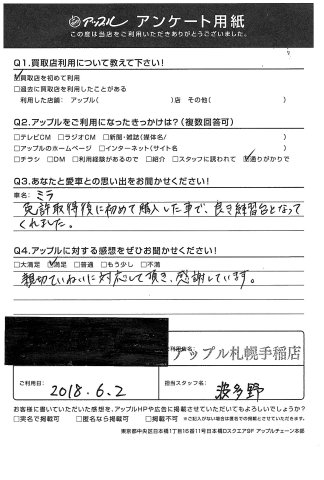 アップル アンケート用紙
この度は当店をご利用いただきありがとうございました。
Q1.買取店利用について教えて下さい!
☑買取店を初めて利用
□過去に買取店を利用したことがある
利用した店舗: アップル( )店 その他( )
Q2.アップルをご利用になったきっかけは?(複数回答可)
□テレビCM □ラジオCM □新聞・雑誌(媒体名/ )
□アップルのホームページ □インターネット(サイト名 )
□チラシ □DM □利用経験があるので □紹介 □スタッフに誘われて ☑通りがかりで
Q3.あなたと愛車との思い出をお聞かせください!
車名: ミラ
免許取得後に初めて購入した車で、良き練習台となって
くれました。
Q4.アップルに対する感想をぜひお聞かせください!
□大満足 ☑満足 □普通 □もう少し □不満
親切ていねいに対応して頂き、感謝しています。
アップル札幌手稲店
ご利用日: 2018.6.2
担当スタッフ名: 波多野
お客様に書いていただいた感想を、アップルHPや広告に掲載させていただいてもよろしいでしょうか?
□実名で掲載可 □匿名なら掲載可 □不可 ※ご記入がない場合は匿名での掲載とさせていただきます。
東京都中央区日本橋1丁目16番11号日本橋Dスクエア9F アップルチェーン本部